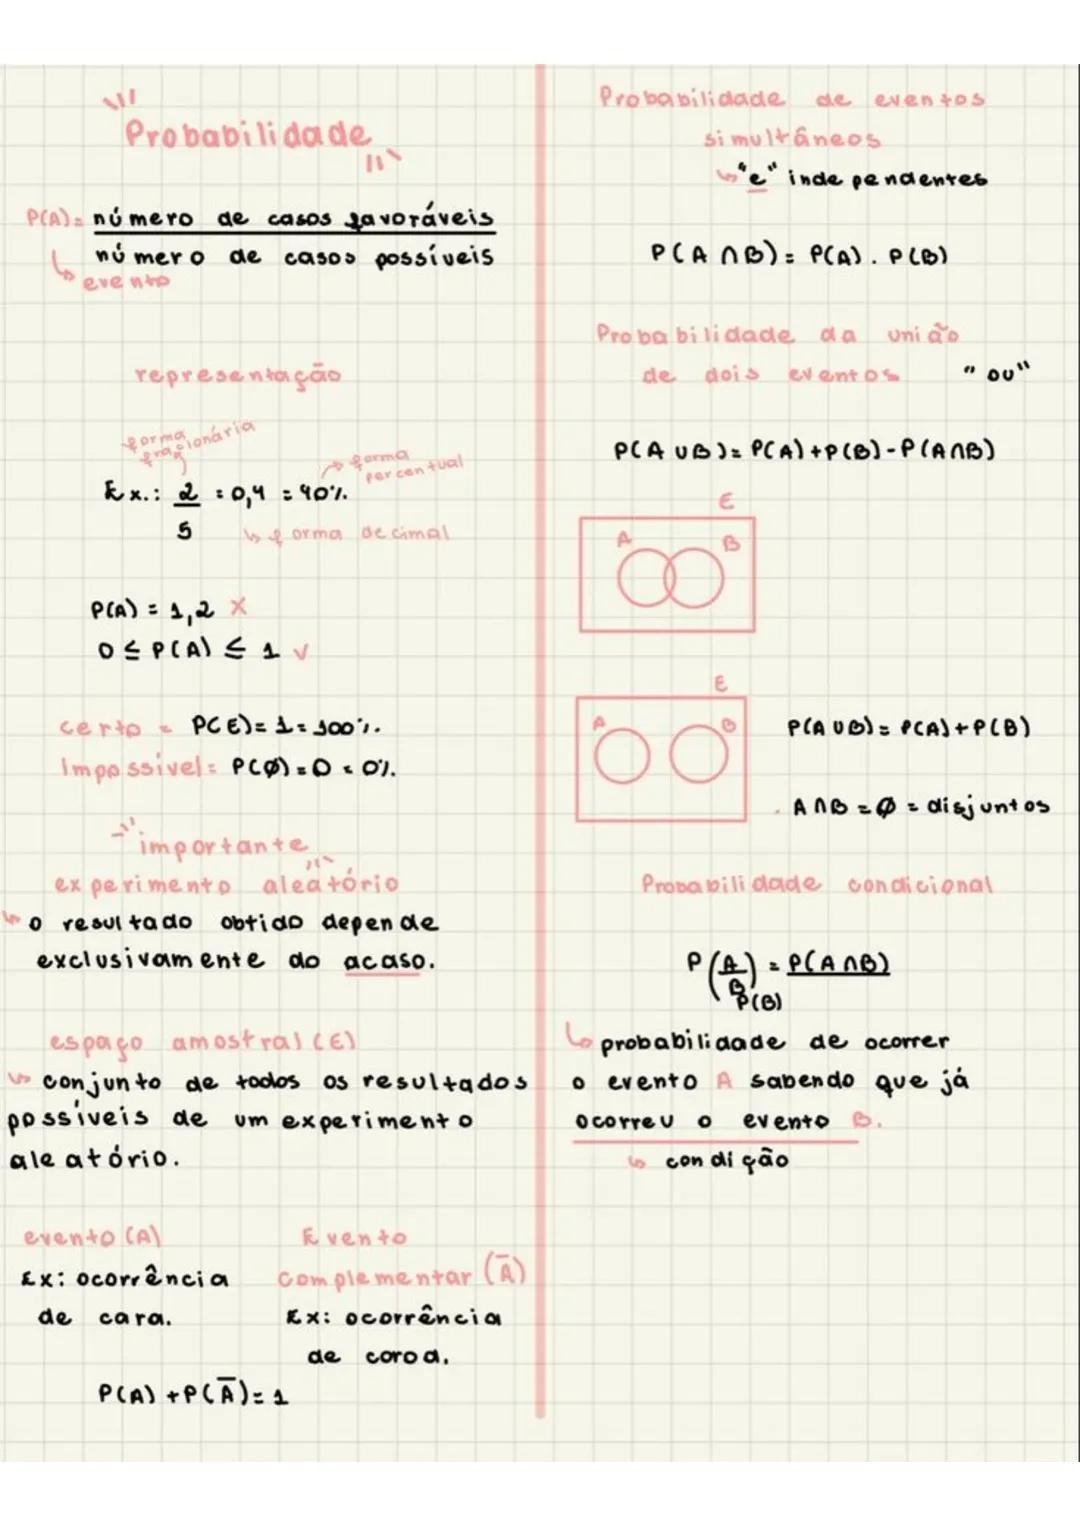 Probabilidade
P(A)= número de casos favoráveis
número de casos possíveis
evento
representação
forma
fracionária
forma
percentual
Ex.: 2 = 0,4 = 40%.
5
forma decimal
P(A) = 1,2 X
0 ≤ P(A) ≤ 1 ✓
certo = P(E)= 1 = 100%.
Impossível = P(Ø) = 0 = 0%.
importante
experimento aleatório
↳ o resultado obtido depende
exclusivamente do acaso.
espaço amostral (E)
↳ conjunto de todos os resultados
possíveis de um experimento
aleatório.
evento (A)
Ex: ocorrência
de cara.
Evento
complementar (Ā)
Ex: ocorrência
de coroa.
P(A) + P(Ā) = 1
Probabilidade de eventos
simultâneos
↳ "e" independentes
P(A ∩ B) = P(A) . P(B)
Probabilidade da união
de dois eventos "ou"
P(A ∪ B) = P(A) + P(B) - P(A∩B)
E
A B
E
A B
P(A ∪ B) = P(A) + P(B)
. A ∩ B = Ø = disjuntos
Probabilidade condicional
P(A/B) = P(A ∩ B)
P(B)
↳ probabilidade de ocorrer
o evento A sabendo que já
ocorreu o evento B.
↳ condição